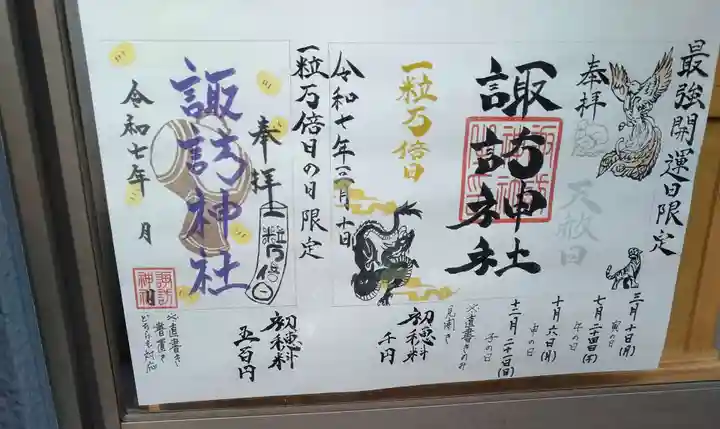 最強開運日限定
奉拝
天赦日
諏訪神社
一粒万倍日
令和七年三月十日
三月十日(月)
寅の日
七月二十四日(木)
午の日
十月六日(月)
申の日
十二月二十一日(日)
子の日
※直書きのみ
見開き
初穂料
千円
一粒万倍日の日限定
奉拝
一粒万倍日
諏訪神社
令和七年 月 日
初穂料
五百円
※直書き
書置き
どちらも対応